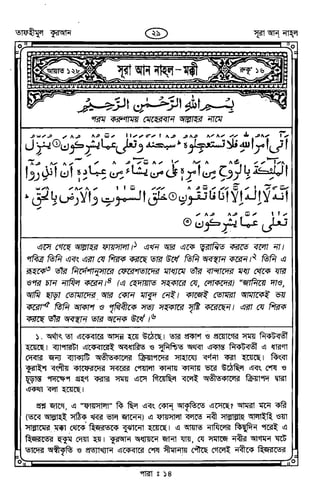 তাফহীমুল কুরআন
২৯
সূরা আন্ নাহল
আয়াত ১২৮
সূরা আন নাহল - মক্কী
রুকূ ১৬
بِسْمِ اللهِ الرَّحْمٰنِ الرَّحِيْمِ
পরম করুণাময় মেহেরবান আল্লাহর নামে
اَتٰۤى اَمْرُ اللهِ فَلَا تَسْتَعْجِلُوْهُ ؕ سُبْحٰنَهٗ وَتَعٰلٰى عَمَّا يُشْرِكُوْنَ ① يُنَزِّلُ
الْمَلٰٓئِكَةَ بِالرُّوْحِ مِنْ اَمْرِهٖ عَلٰى مَنْ يَّشَآءُ مِنْ عِبَادِهٖۤ اَنْ اَنْذِرُوْۤا
اَنَّهٗ لَاۤ اِلٰهَ اِلَّاۤ اَنَا فَاتَّقُوْنِ ② خَلَقَ السَّمٰوٰتِ وَالْاَرْضَ بِالْحَقِّ ؕ
تَعٰلٰى عَمَّا يُشْرِكُوْنَ ③
এসে গেছে আল্লাহর ফায়সালা।১ এখন আর একে ত্বরান্বিত করতে বলো না।
পবিত্র তিনি এবং এরা যে শিরক করছে তার ঊর্ধে তিনি অবস্থান করেন।২ তিনি এ
রূহকে৩ তাঁর নির্দেশানুসারে ফেরেশতাদের মাধ্যমে তাঁর বান্দাদের মধ্য থেকে যার
ওপর চান নাযিল করেন।৪ (এ হেদায়াত সহকারে যে, লোকদের) "জানিয়ে দাও,
আমি ছাড়া তোমাদের আর কোন মাবুদ নেই। কাজেই তোমরা আমাকেই ভয়
করো"৫ তিনি আকাশ ও পৃথিবীকে সত্য সহকারে সৃষ্টি করেছেন। এরা যে শিরক
করছে তাঁর অবস্থান তার অনেক ঊর্ধে।৬
১. অর্থাৎ তা একেবারে আসন্ন হয়ে উঠেছে। তার প্রকাশ ও প্রয়োগের সময় নিকটবর্তী
হয়েছে। ব্যাপারটা একেবারেই অবধারিত ও সুনিশ্চিত অথবা একান্ত নিকটবর্তী এ ধারণা
দেবার জন্য বাক্যটি অতীতকালের ক্রিয়াপদের সাহায্যে বর্ণনা করা হয়েছে। কিংবা
কুরাইশ বংশীয় কাফেরদের সবরের পেয়ালা কানায় কানায় ভরে উঠেছিল এবং শেষ ও
চূড়ান্ত পদক্ষেপ গ্রহণ করার সময় এসে গিয়েছিল বলেই অতীতকালের ক্রিয়াপদ দ্বারা
একথা বলা হয়েছে।
প্রশ্ন জাগে, এ "ফায়সালা" কি ছিল এবং কোন্ আকৃতিতে এসেছে? আমরা মনে করি
(তবে আল্লাহই সঠিক খবর ভাল জানেন) এ ফায়সালা বলতে নবী সাল্লাল্লাহু আলাইহি ওয়া
সাল্লামের মক্কা থেকে হিজরতকে বুঝানো হয়েছে। এ আয়াত নাযিলের কিছুদিন পরেই এ
হিজরতের হুকুম দেয়া হয়। কুরআন অধ্যয়নে জানা যায়, যে সমাজে নবীর আগমন ঘটে
তাদের অস্বীকৃতি ও প্রত্যাখ্যান একেবারে শেষ সীমানায় পৌছে গেলেই নবীকে হিজরতের
পারা : ১৪